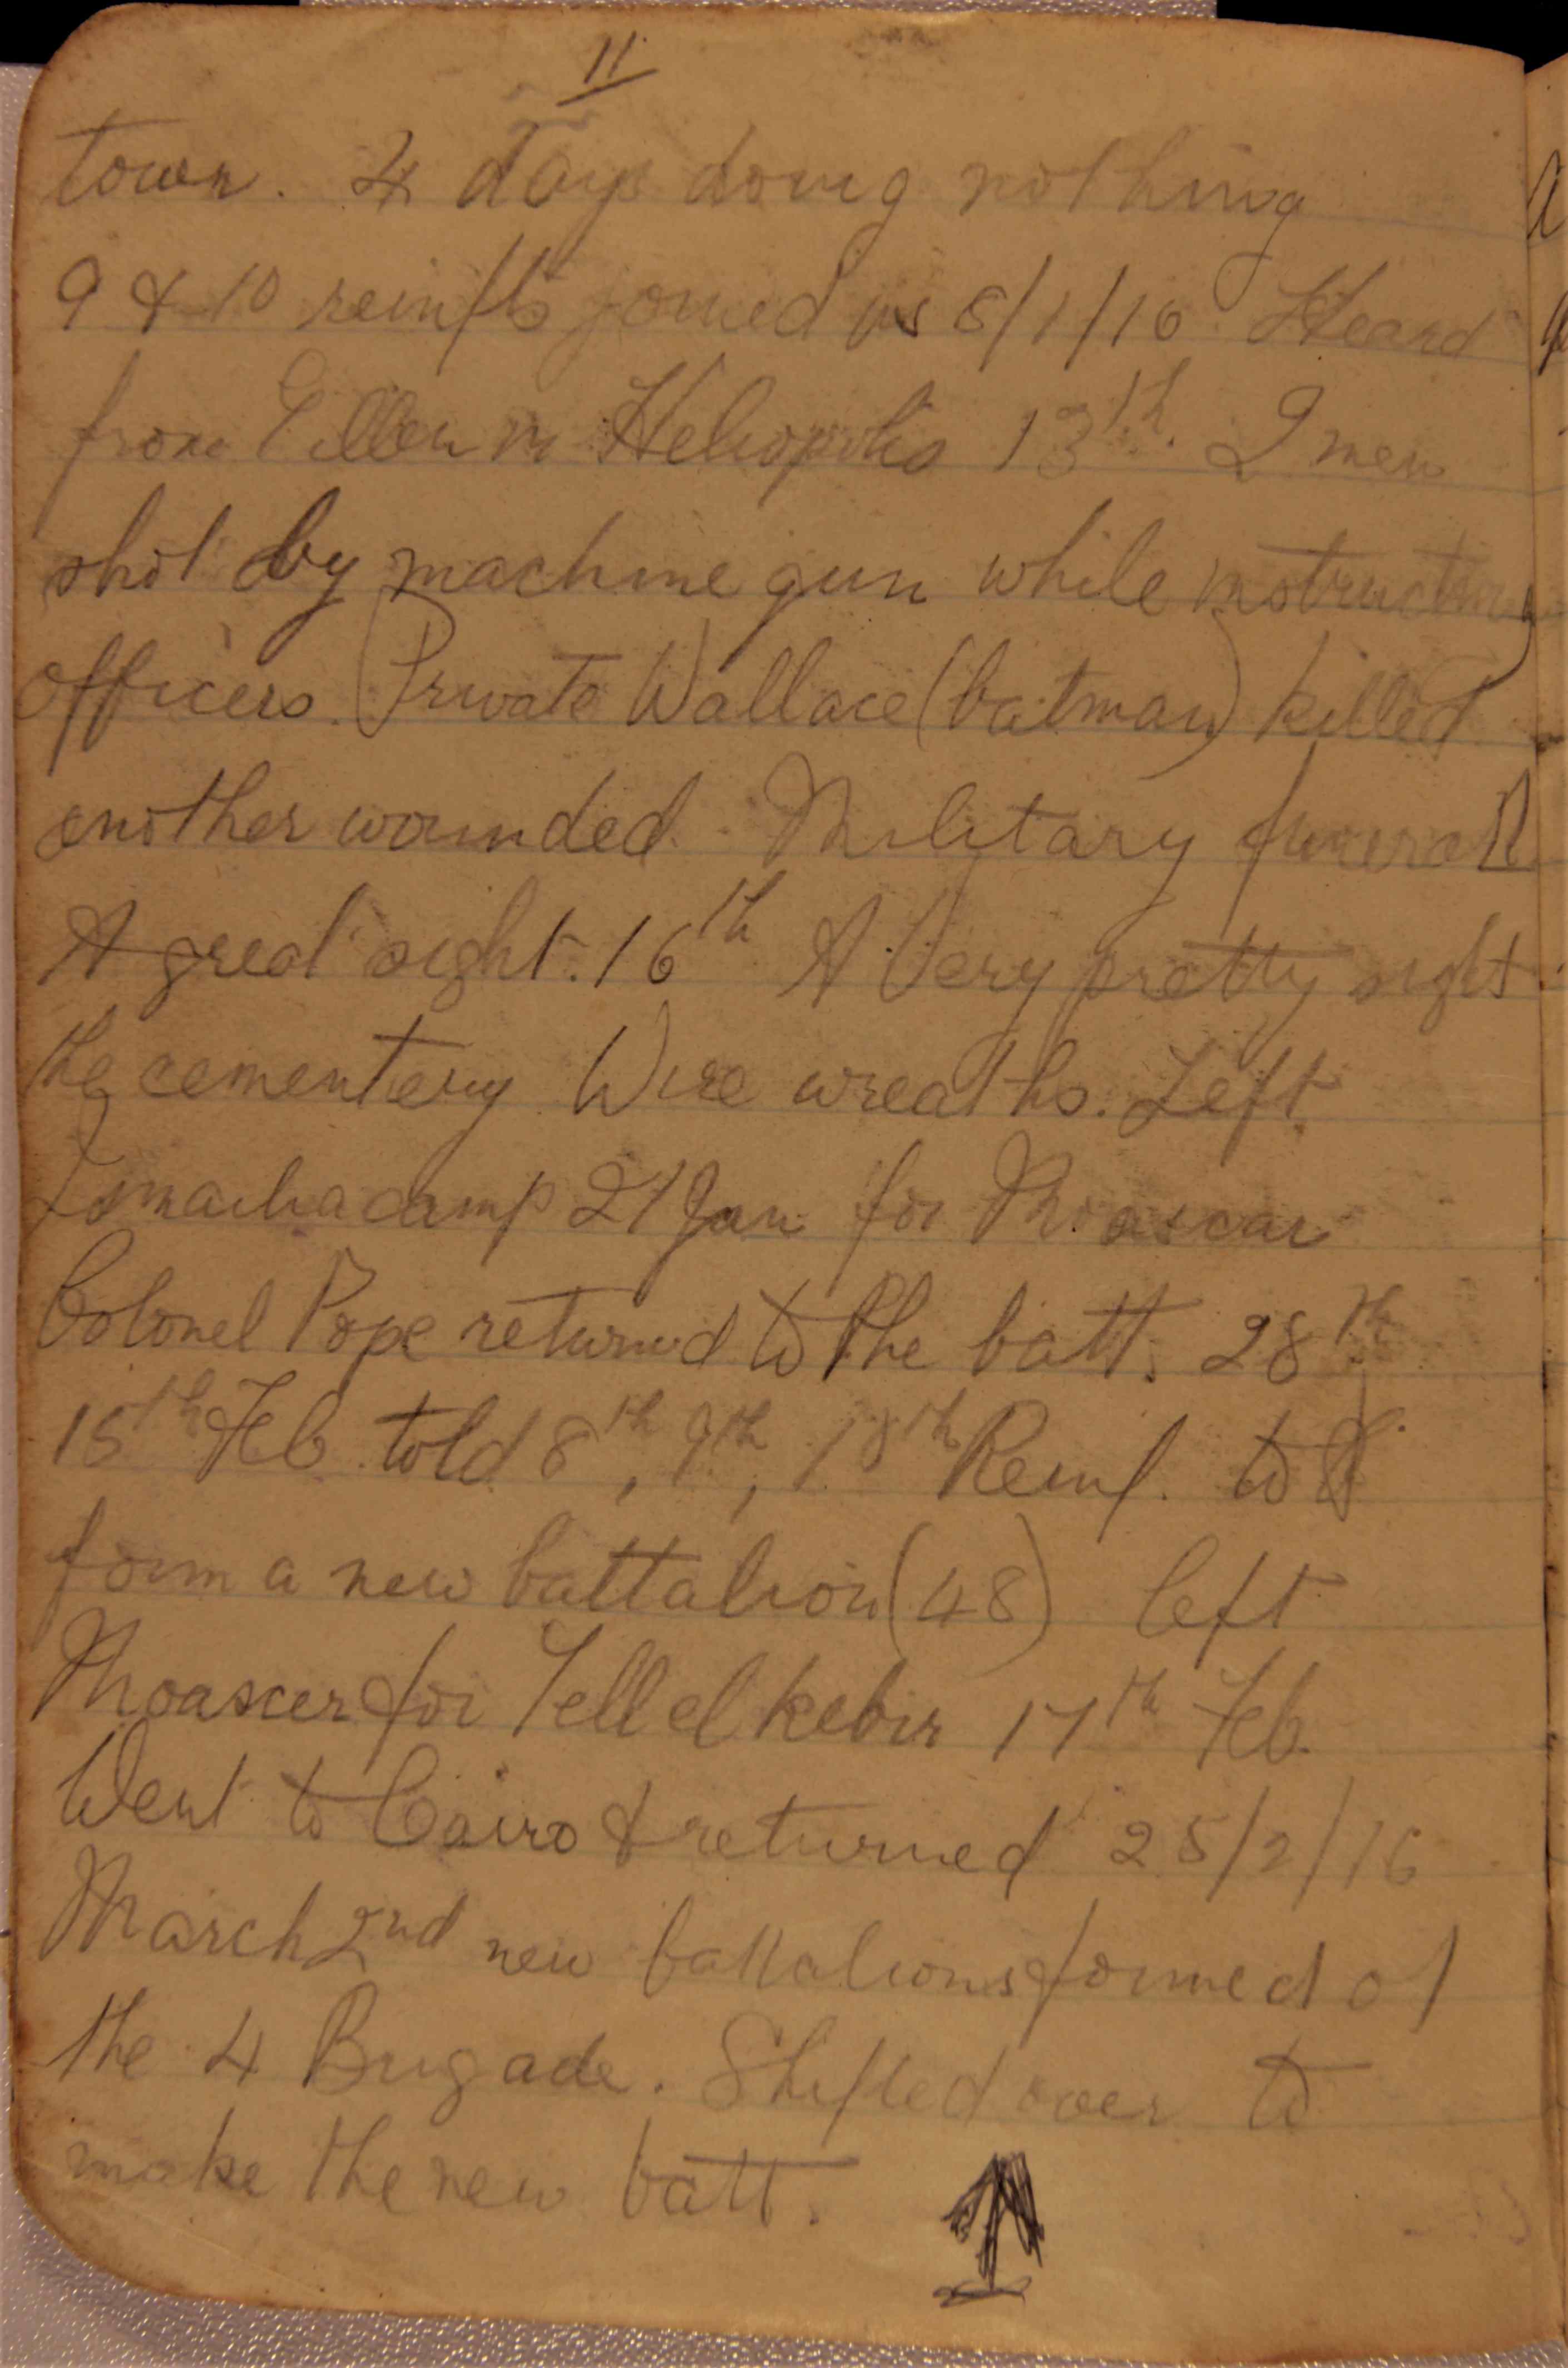 11
town. 4 days doing nothing
9 & 10 reinfts joined us 8/1/16. Heard
from Ellen in Heliopolis 13th. 2 men
shot by machine gun while instructing
officers. Private Wallace (batman) killed
another wounded. Military funeral
A great sight. 16th A Very pretty sight
the cementery Wire wreaths. Left
Ismailia camp 21 Jan for Moascar
Colonel Pope returned to the batt. 28th
15th Feb told 8th, 9th, 10th Reinf. to
form a new battalion (48) left
Moascer for Tell el kebir 17th Feb.
Went to Cairo & returned 25/2/16
March 2nd new battalions formed of
the 4 Brigade. Shifted over to
make the new batt.